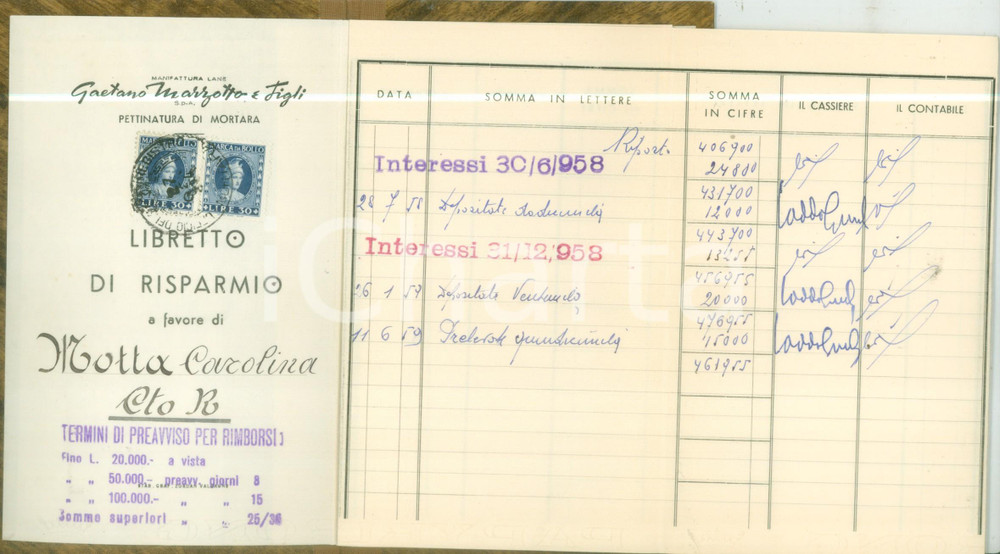 MANIFATTURA LANE
Gaetano Marzotto e Figli
S.D.A.
PETTINATURA DI MORTARA
MARCA DA BOLLO MARCA DA BOLLO
LIRE 30 LIRE 30
LIBRETTO
DI RISPARMIO
a favore di
Motta Carolina
Cto R
TERMINI DI PREAVVISO PER RIMBORSI:
Fino L. 20.000.- a vista
" " 50.000.- preavv. giorni 8
" " 100.000.- " " 15
Somme superiori " " 25/30
DATA SOMMA IN LETTERE SOMMA IN CIFRE IL CASSIERE IL CONTABILE
Riporto 406900
Interessi 30/6/958 24800
431700
28 7 58 Depositate dodicimila 12000
443700
Interessi 31/12,958 13255
456955
26 1 59 Depositate Ventimila 20000
476955
11 6 59 Prelevate quindicimila 15000
461955
iCharta